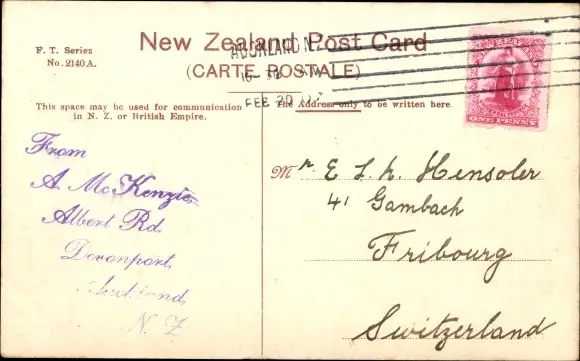 F. T. Series
No. 2140 A.
New Zealand Post Card
(CARTE POSTALE)
AUCKLAND N.Z.
FEB 20
ONE PENNY
This space may be used for communication
in N. Z. or British Empire.
The Address only to be written here.
From
A. McKenzie
Albert Rd.
Devonport,
Auckland
N. Z
Mr E L. h. Hensoler
41 Gambach
Fribourg
Switzerland